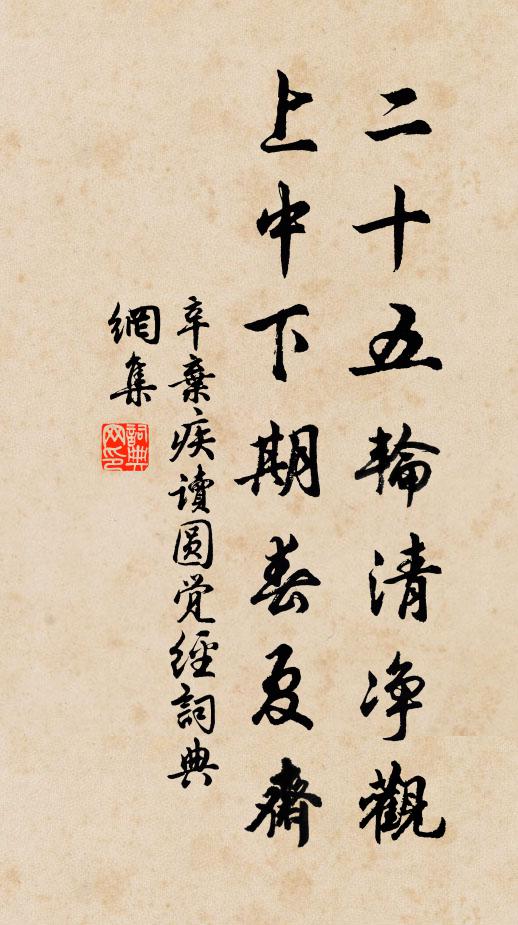 二十五輪清净觀
上中下期春夏齋
辛棄疾讀圆覺經詞典
網集
詞典網印